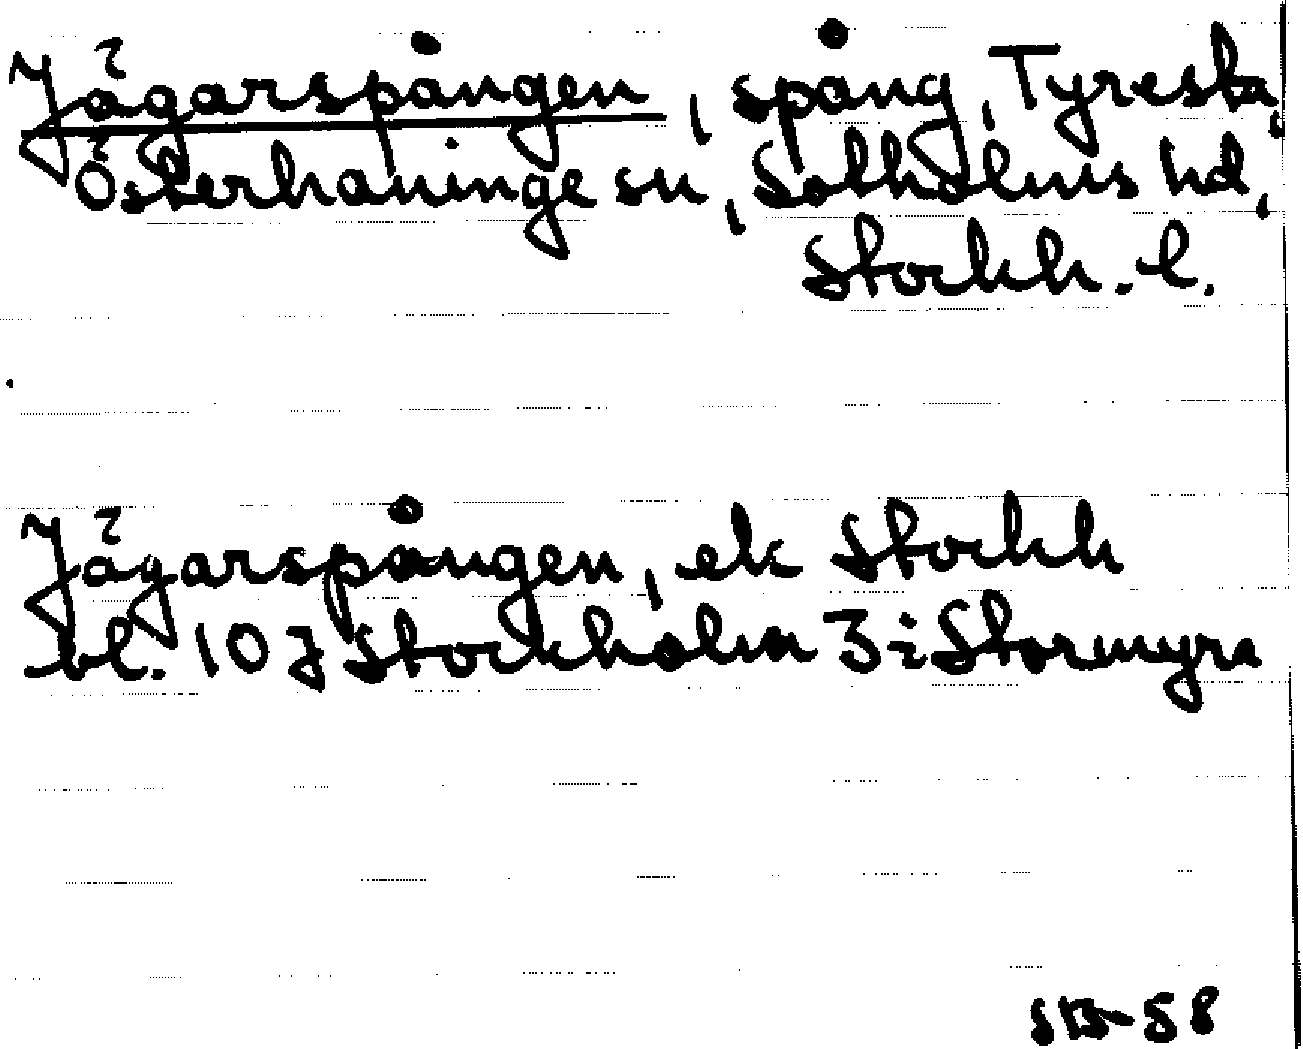 Jägarspången, spång, Tyresta,
Österhaninge sn, Sotholms hd,
Stockh. l.
Jägarspången, ek Stockh
bl. 10 J Stockholm 3 i Stormyra
SB-58